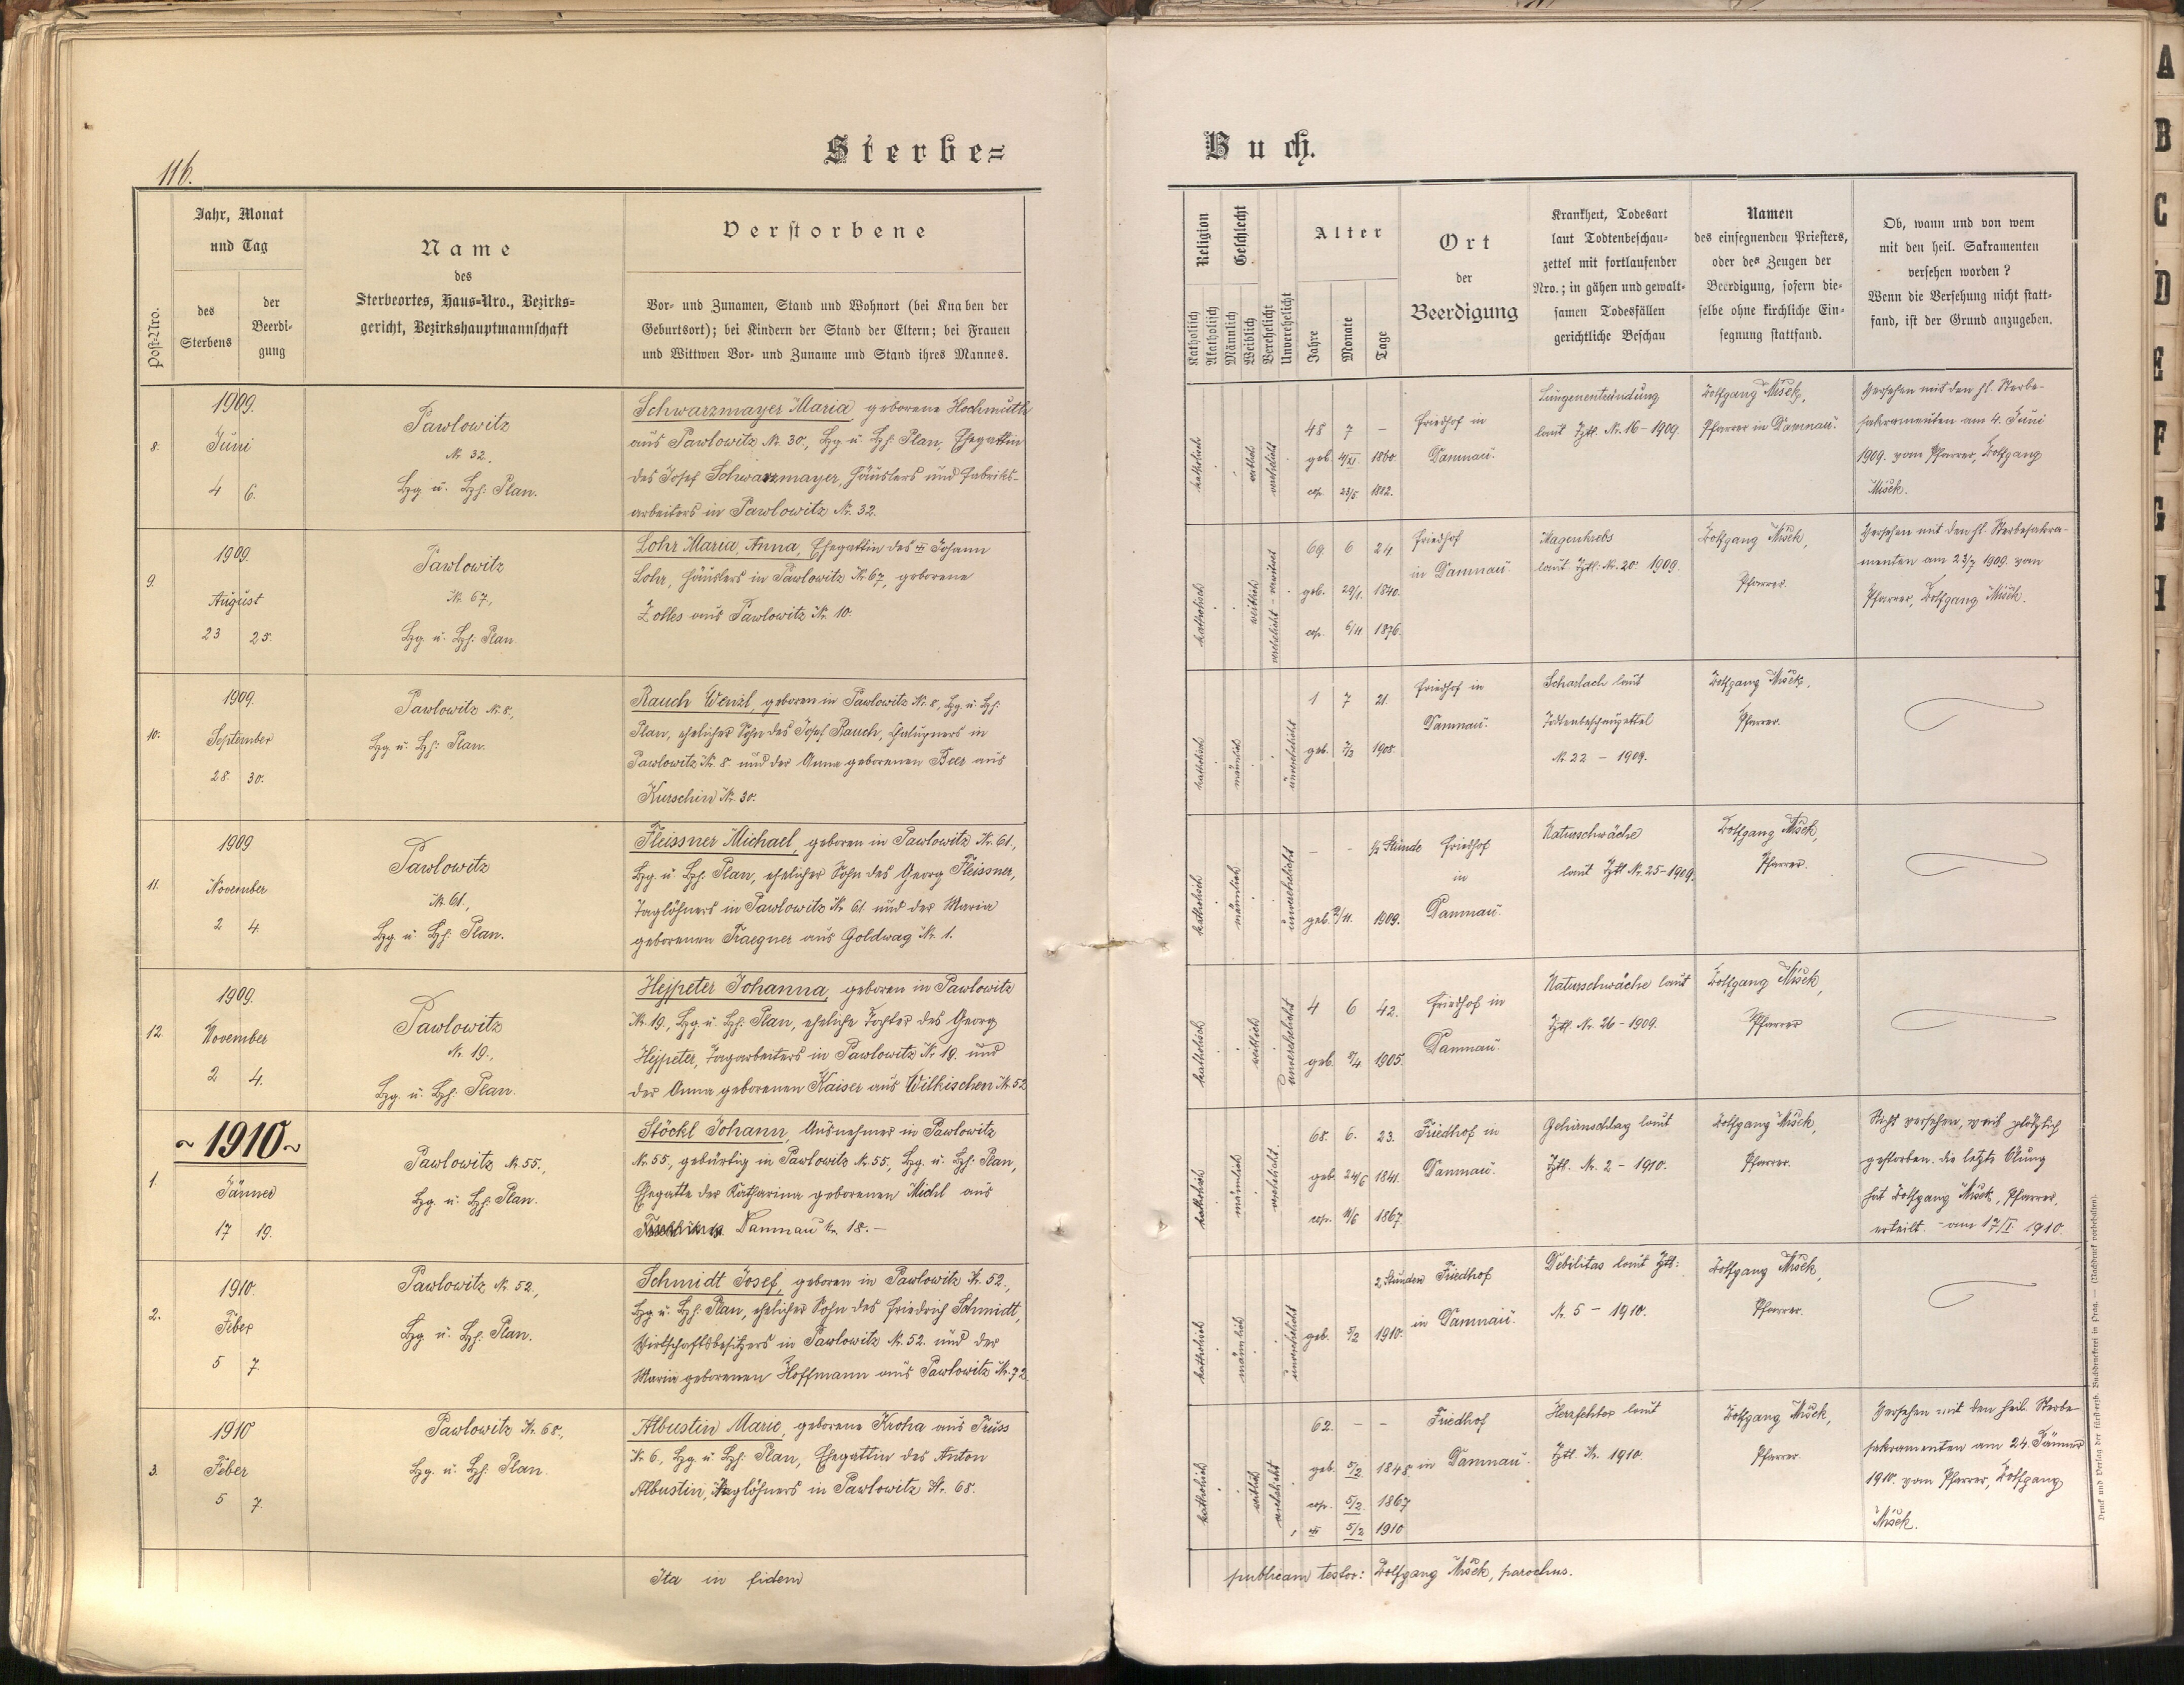 116.
Sterbe=
Buch.
Jahr, Monat
und Tag
Post-Nro.
des
Sterbens
der
Beerdi-
gung
Name
des
Sterbeortes, Haus=Nro., Bezirks=
gericht, Bezirkshauptmannschaft
Verstorbene
Vor- und Zunamen, Stand und Wohnort (bei Knaben der
Geburtsort); bei Kindern der Stand der Eltern; bei Frauen
und Wittwen Vor- und Zuname und Stand ihres Mannes.
Religion
Katholisch
Akatholisch
Geschlecht
Männlich
Weiblich
Verehelicht
Unverehelicht
Alter
Jahre
Monate
Tage
Ort
der
Beerdigung
Krankheit, Todesart
laut Todtenbeschau-
zettel mit fortlaufender
Nro.; in gähen und gewalt-
samen Todesfällen
gerichtliche Beschau
Namen
des einsegnenden Priesters,
oder des Zeugen der
Beerdigung, sofern die-
selbe ohne kirchliche Ein-
segnung stattfand.
Ob, wann und von wem
mit den heil. Sakramenten
versehen worden?
Wenn die Versehung nicht statt-
fand, ist der Grund anzugeben.
8.
1909.
Juni
4 6.
Pawlowitz
Nr. 32.
Bzg. u. Bzh. Plan.
Schwarzmayer Maria, geborene Hochmuth
aus Pawlowitz Nr. 30., Bzg. u. Bzh. Plan, Ehegattin
des Josef Schwarzmayer, Häuslers und Fabriks-
arbeiters in Pawlowitz Nr. 32.
katholisch
weiblich
verehelicht
48 7 –
geb. 4/XI. 1860.
cop. 23/5 1882.
Friedhof in
Damnau.
Lungenentzündung
laut Bztl. Nr. 16 – 1909
Wolfgang Mišek,
Pfarrer in Damnau.
Versehen mit den hl. Sterbe-
sakramenten am 4. Juni
1909. vom Pfarrer, Wolfgang
Mišek.
9.
1909.
August
23 25.
Pawlowitz
Nr. 67,
Bzg. u. Bzh. Plan.
Lohr Maria, Anna, Ehegattin des Johann
Lohr, Häuslers in Pawlowitz Nr. 67, geborene
Zolles aus Pawlowitz Nr. 10.
katholisch
weiblich
verehelicht - verwitwet
69. 6 24
geb. 29/1. 1840.
cop. 6/11 1876.
Friedhof
in Damnau.
Magenkrebs
laut Bztl. Nr. 20. 1909.
Wolfgang Mišek,
Pfarrer.
Versehen mit den hl. Sterbesakra-
menten am 23/7 1909. vom
Pfarrer, Wolfgang Mišek.
10.
1909.
September
28. 30.
Pawlowitz Nr. 8.,
Bzg. u. Bzh. Plan.
Rauch Wenzl, geboren in Pawlowitz Nr. 8., Bzg. u. Bzh.
Plan, ehelicher Sohn des Josef Rauch, Chalupners in
Pawlowitz Nr. 8. und der Anna geborenen Beer aus
Kurschin Nr. 30.
katholisch
männlich
unverehelicht
1 7 21.
geb. 1908.
Friedhof in
Damnau.
Scharlach laut
Todtenbeschauzettel
Nr. 22 – 1909.
Wolfgang Mišek,
Pfarrer.
11.
1909
November
2 4.
Pawlowitz
Nr. 61.,
Bzg. u. Bzh. Plan.
Fleissner Michael, geboren in Pawlowitz Nr. 61.,
Bzg. u. Bzh. Plan, ehelicher Sohn des Georg Fleissner,
Taglöhners in Pawlowitz Nr. 61 und der Maria
geborenen Traegner aus Goldwag Nr. 1.
katholisch
männlich
unverehelicht
– – 1/2 Stunde
geb. 2/11. 1909.
Friedhof
in
Damnau.
Naturschwäche
laut Bztl. Nr. 25 – 1909.
Wolfgang Mišek,
Pfarrer.
12.
1909.
November
2 4.
Pawlowitz
Nr. 19.,
Bzg. u. Bzh. Plan.
Hejpeter Johanna, geboren in Pawlowitz
Nr. 19., Bzg. u. Bzh. Plan, eheliche Tochter des Georg
Hejpeter, Tagarbeiters in Pawlowitz Nr. 19. und
der Anna geborenen Kaiser aus Wilkischen Nr. 52
katholisch
weiblich
unverehelicht
4 6 42.
geb. 1905.
Friedhof in
Damnau.
Naturschwäche laut
Bztl. Nr. 26 – 1909.
Wolfgang Mišek,
Pfarrer
~ 1910 ~
1.
Jänner
17 19.
Pawlowitz Nr. 55.,
Bzg. u. Bzh. Plan.
Stöckl Johann, Ausnehmer in Pawlowitz
Nr. 55., gebürtig in Pawlowitz Nr. 55., Bzg. u. Bzh. Plan,
Ehegatte der Katharina geborenen Michl aus
Damnau Nr. 18. –
katholisch
männlich
verehelicht.
68. 6. 23.
geb. 24/6 1841.
cop. 11/6 1867.
Friedhof in
Damnau.
Gehirnschlag laut
Bztl. Nr. 2 – 1910.
Wolfgang Mišek,
Pfarrer.
Nicht versehen, weil plötzlich
gestorben. die letzte Ölung
hat Wolfgang Mišek, Pfarrer,
erteilt. – am 17/I. 1910.
2.
1910.
Feber
5 7.
Pawlowitz Nr. 52.,
Bzg. u. Bzh. Plan.
Schmidt Josef, geboren in Pawlowitz Nr. 52.,
Bzg. u. Bzh. Plan, ehelicher Sohn des Friedrich Schmidt,
Wirtschaftsbesitzers in Pawlowitz Nr. 52. und der
Maria geborenen Hoffmann aus Pawlowitz Nr. 72.
katholisch
männlich
unverehelicht
2 Stunden
geb. 5/2 1910.
Friedhof
in Damnau.
Debilitas laut Bztl.
Nr. 5 – 1910.
Wolfgang Mišek,
Pfarrer.
3.
1910
Feber
5 7.
Pawlowitz Nr. 68.,
Bzg. u. Bzh. Plan.
Albustin Marie, geborene Kroha aus Truss
Nr. 6., Bzg. u. Bzh. Plan, Ehegattin des Anton
Albustin, Taglöhners in Pawlowitz Nr. 68.
katholisch
weiblich
verehelicht
62. – –
geb. 5/2. 1848.
cop. 5/2. 1867
5/2 1910
Friedhof
in Damnau.
Herzfehler laut
Bztl. Nr. 1910.
Wolfgang Mišek,
Pfarrer.
Versehen mit den heil. Sterbe-
sakramenten am 24. Jänner
1910. vom Pfarrer, Wolfgang
Mišek.
Ita in fidem
publicam testor: Wolfgang Mišek, parochus.
Druck und Verlag der fürsterzb. Buchdruckerei in Prag. — (Nachdruck vorbehalten).
A
B
C
D
E
F
G
H